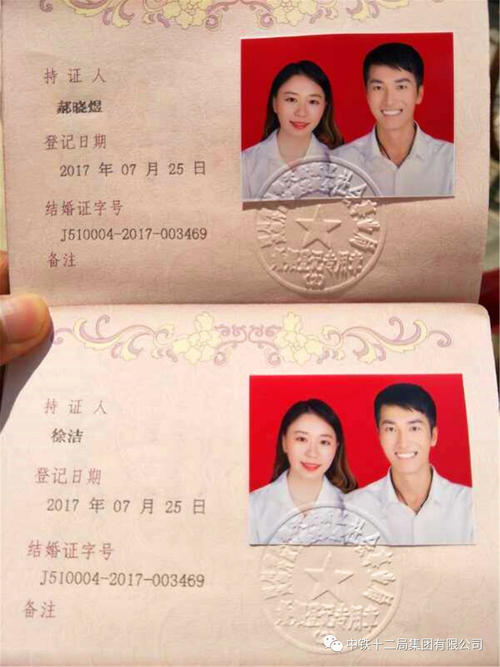 持证人
郝晓煜
登记日期
2017 年 07 月 25 日
结婚证字号
J510004-2017-003469
备注
持证人
徐洁
登记日期
2017 年 07 月 25 日
结婚证字号
J510004-2017-003469
备注
中铁十二局集团有限公司